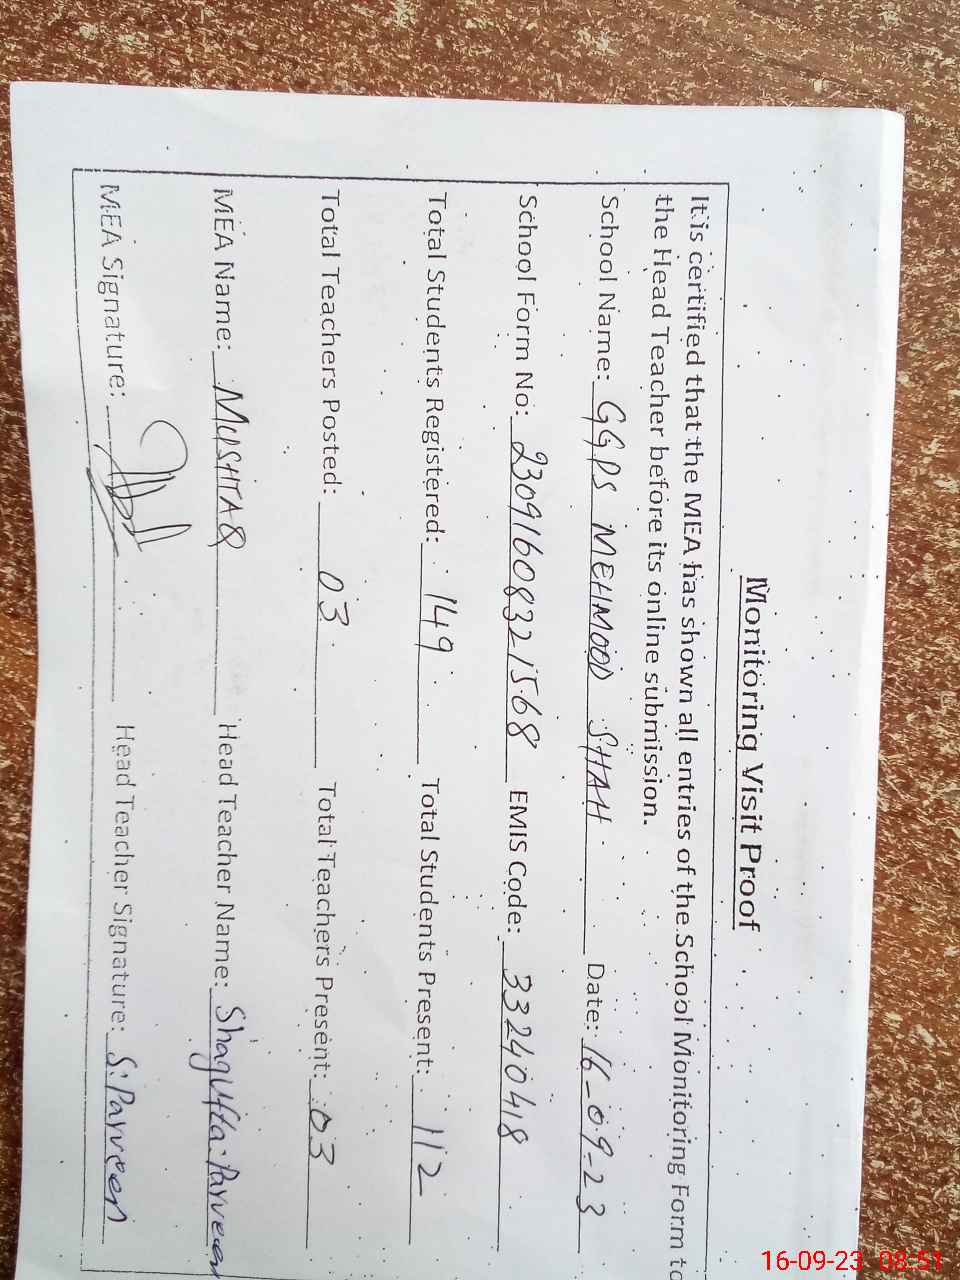 Monitoring Visit Proof
It is certified that the MEA has shown all entries of the School Monitoring Form to
the Head Teacher before its online submission.
School Name: GGPS MEHMOOD SHAH Date: 16-09-23
School Form No: 23091608321568 EMIS Code: 33240418
Total Students Registered: 149 Total Students Present: 112
Total Teachers Posted: 03 Total Teachers Present: 03
MEA Name: MUSHTAQ Head Teacher Name: Shagufta Parveen
MEA Signature: Head Teacher Signature: S. Parveen
16-09-23 08:51